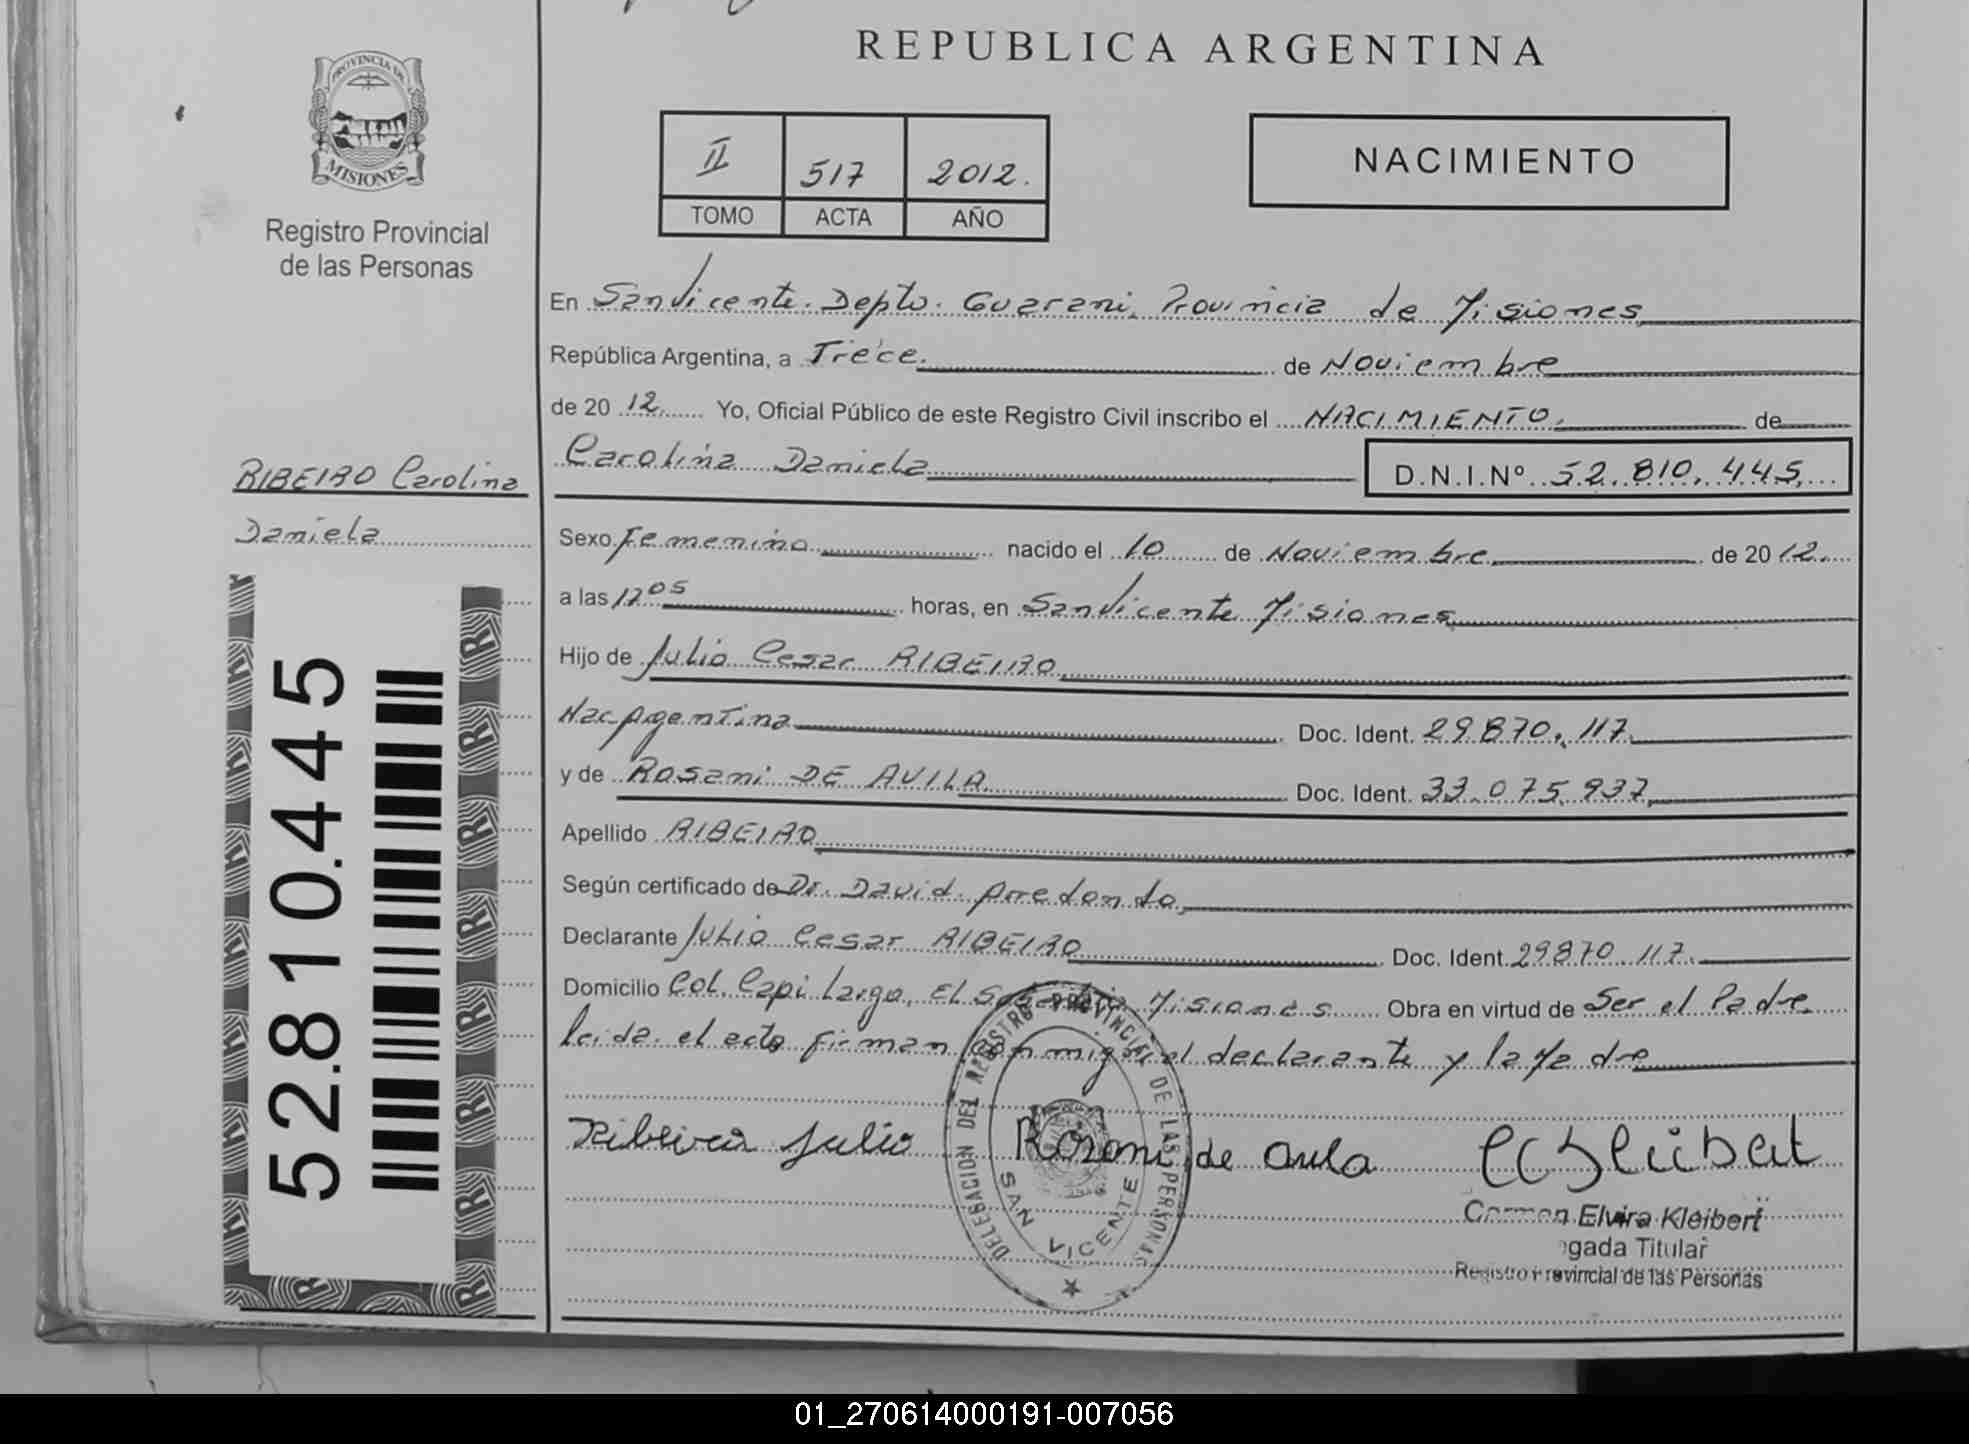 REPUBLICA ARGENTINA
PROVINCIA DE
MISIONES
Registro Provincial
de las Personas
II 517 2012.
TOMO ACTA AÑO
NACIMIENTO
En San Vicente. Depto. Guarani, Provincia de Misiones
República Argentina, a Trece de Noviembre
de 20 12 Yo, Oficial Público de este Registro Civil inscribo el NACIMIENTO de
Carolina Daniela D.N.I.Nº 52.810.445
RIBEIRO Carolina
Daniela
Sexo Femenino nacido el 10 de Noviembre de 20 12
a las 17 05 horas, en San Vicente Misiones
Hijo de Julio Cesar RIBEIRO
Nac Argentina Doc. Ident. 29.870.117
y de Rosani DE AVILA Doc. Ident. 33.075.937
Apellido RIBEIRO
Según certificado de Dr. David Arredondo
Declarante Julio Cesar RIBEIRO Doc. Ident. 29870.117
Domicilio Col. Capi Largo, El Misiones Obra en virtud de Ser el Padre
leida el acta firman conmigo el declarante y la Madre
52.810.445
Julio Rosani de Avila
DELEGACION DEL REGISTRO PROVINCIAL DE LAS PERSONAS
SAN VICENTE
Carmen Elvira Kleibert
gada Titular
Registro Provincial de las Personas
01_270614000191-007056